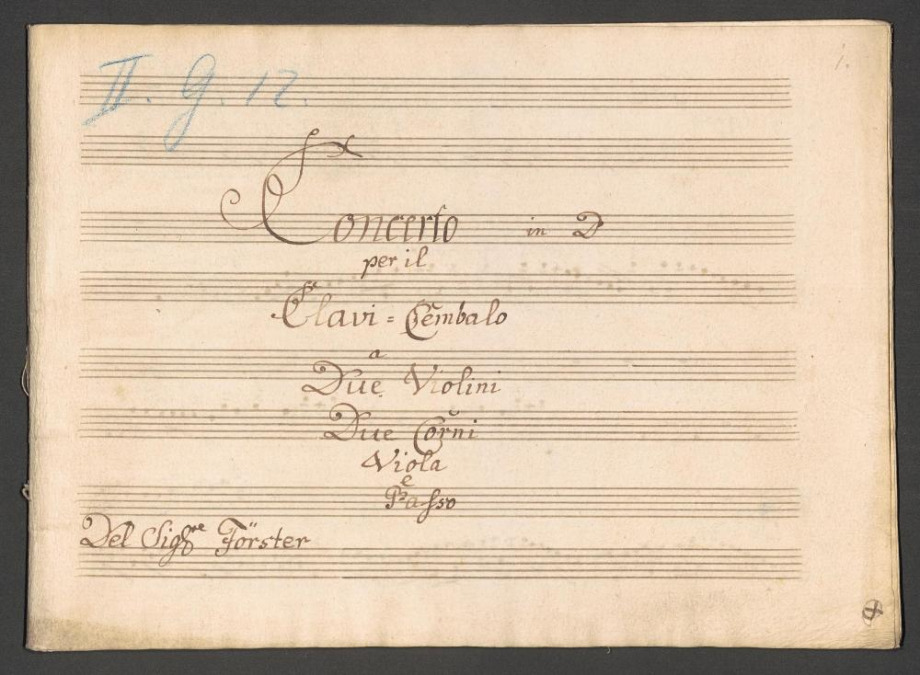 II. G. 12.
1.
Concerto in D
per il
Clavi = Cembalo
a
Due Violini
Due Corni
Viola
e
Basso
Del Sigre Förster